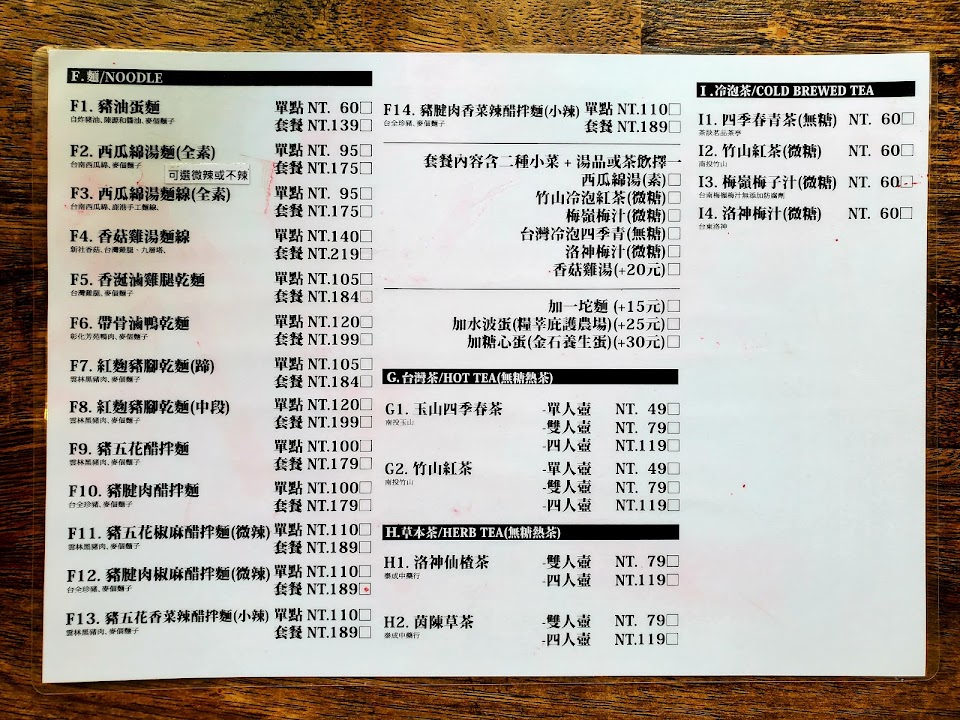 F. 麵/NOODLE
F1. 豬油蛋麵 單點 NT. 60□
自炸豬油、陳源和醬油、麥個麵子 套餐 NT.139□
F2. 西瓜綿湯麵(全素) 單點 NT. 95□
台南西瓜綿、麥個麵子 可選微辣或不辣 套餐 NT.175□
F3. 西瓜綿湯麵線(全素) 單點 NT. 95□
台南西瓜綿、鹿港手工麵線、 套餐 NT.175□
F4. 香菇雞湯麵線 單點 NT.140□
新社香菇、台灣雞腿、九層塔、 套餐 NT.219□
F5. 香涎滷雞腿乾麵 單點 NT.105□
台灣雞腿、麥個麵子 套餐 NT.184□
F6. 帶骨滷鴨乾麵 單點 NT.120□
彰化芳苑鴨肉、麥個麵子 套餐 NT.199□
F7. 紅麴豬腳乾麵(蹄) 單點 NT.105□
雲林黑豬肉、麥個麵子 套餐 NT.184□
F8. 紅麴豬腳乾麵(中段) 單點 NT.120□
雲林黑豬肉、麥個麵子 套餐 NT.199□
F9. 豬五花醋拌麵 單點 NT.100□
雲林黑豬肉、麥個麵子 套餐 NT.179□
F10. 豬腱肉醋拌麵 單點 NT.100□
台全珍豬、麥個麵子 套餐 NT.179□
F11. 豬五花椒麻醋拌麵(微辣) 單點 NT.110□
雲林黑豬肉、麥個麵子 套餐 NT.189□
F12. 豬腱肉椒麻醋拌麵(微辣) 單點 NT.110□
台全珍豬、麥個麵子 套餐 NT.189□
F13. 豬五花香菜辣醋拌麵(小辣) 單點 NT.110□
雲林黑豬肉、麥個麵子 套餐 NT.189□
F14. 豬腱肉香菜辣醋拌麵(小辣) 單點 NT.110□
台全珍豬、麥個麵子 套餐 NT.189□
套餐內容含二種小菜 + 湯品或茶飲擇一
西瓜綿湯(素)□
竹山冷泡紅茶(微糖)□
梅嶺梅汁(微糖)□
台灣冷泡四季青(無糖)□
洛神梅汁(微糖)□
香菇雞湯(+20元)□
加一坨麵 (+15元)□
加水波蛋(糧莘庇護農場)(+25元)□
加糖心蛋(金石養生蛋)(+30元)□
G.台灣茶/HOT TEA(無糖熱茶)
G1. 玉山四季春茶 -單人壺 NT. 49□
南投玉山 -雙人壺 NT. 79□
-四人壺 NT.119□
G2. 竹山紅茶 -單人壺 NT. 49□
南投竹山 -雙人壺 NT. 79□
-四人壺 NT.119□
H.草本茶/HERB TEA(無糖熱茶)
H1. 洛神仙楂茶 -雙人壺 NT. 79□
泰成中藥行 -四人壺 NT.119□
H2. 茵陳草茶 -雙人壺 NT. 79□
泰成中藥行 -四人壺 NT.119□
I.冷泡茶/COLD BREWED TEA
I1. 四季春青茶(無糖) NT. 60□
茶訣茗品茶亭
I2. 竹山紅茶(微糖) NT. 60□
南投竹山
I3. 梅嶺梅子汁(微糖) NT. 60□
台南梅嶺梅汁無添加防腐劑
I4. 洛神梅汁(微糖) NT. 60□
台東洛神